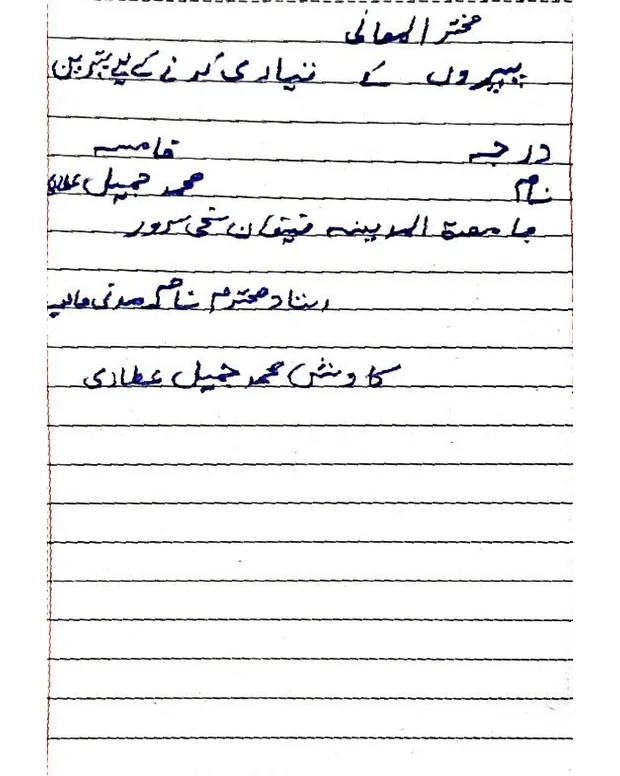 مختر المعانی
پیپروں کے تیاری کرنے کے لیے بہترین
درجہ خامسہ
نام محمد جمیل عطاری
جامعۃ المدینہ فیضان سخی سرور
استاد محترم ناصر مدنی صاحب
کاوش محمد جمیل عطاری